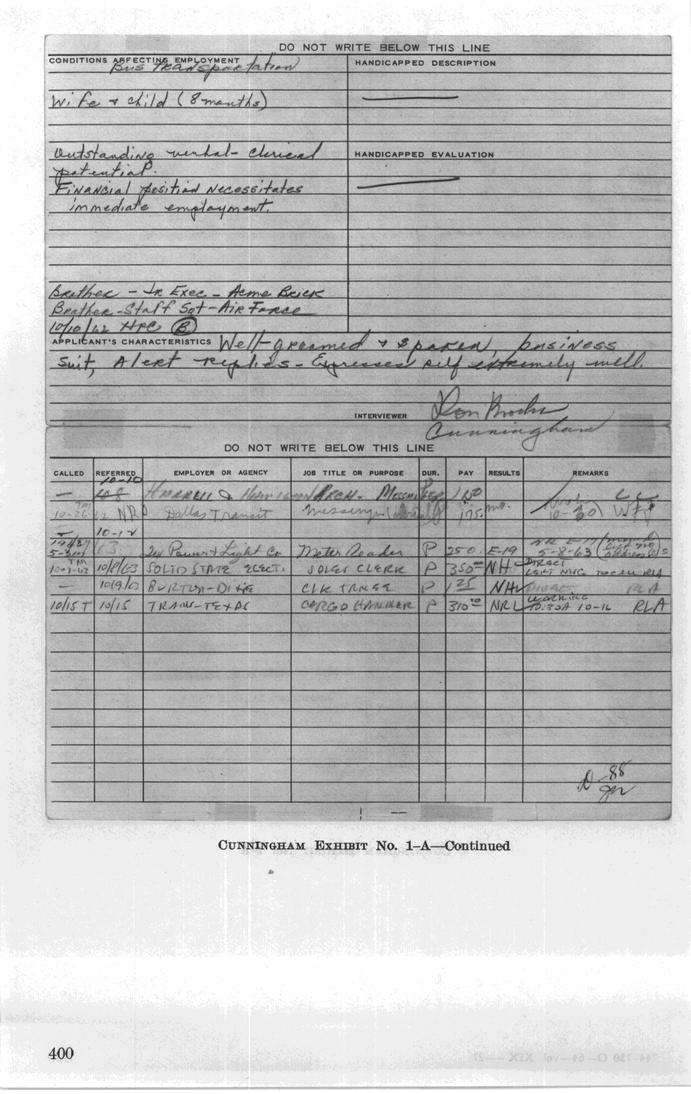 DO NOT WRITE BELOW THIS LINE
CONDITIONS AFFECTING EMPLOYMENT
Bus Transportation
HANDICAPPED DESCRIPTION
Wife & child (8 months)
Outstanding verbal-clerical
potential.
HANDICAPPED EVALUATION
Financial position necessitates
immediate employment.
Brother - Jr Exec - Acme Brick
Brother-Staff Sgt-Air Force
10/10/62 HPC B
APPLICANT'S CHARACTERISTICS Well-groomed & spoken, business
suit, Alert replies - Expresses self extremely well.
INTERVIEWER Don Brooks
Cunningham
DO NOT WRITE BELOW THIS LINE
CALLED REFERRED EMPLOYER OR AGENCY JOB TITLE OR PURPOSE DUR. PAY RESULTS REMARKS
10-10
— Messenger P
Dallas Transit Messenger 175 mo. 10-30
5-3 Tex Power & Light Co Meter Reader P 250 E-19 5-8-63
10/8/63 SOLID STATE ELECT. SALES CLERK P 350 NH DIRECT RLA
— 10/9/63 BURTON-DIXIE CLK TRNEE P 1 25 NH Direct RLA
10/15 T 10/15 TRANS-TEXAS CARGO HANDLER P 310 NRL WORKING 10-16 RLA
D-88
CUNNINGHAM EXHIBIT No. 1-A—Continued
400